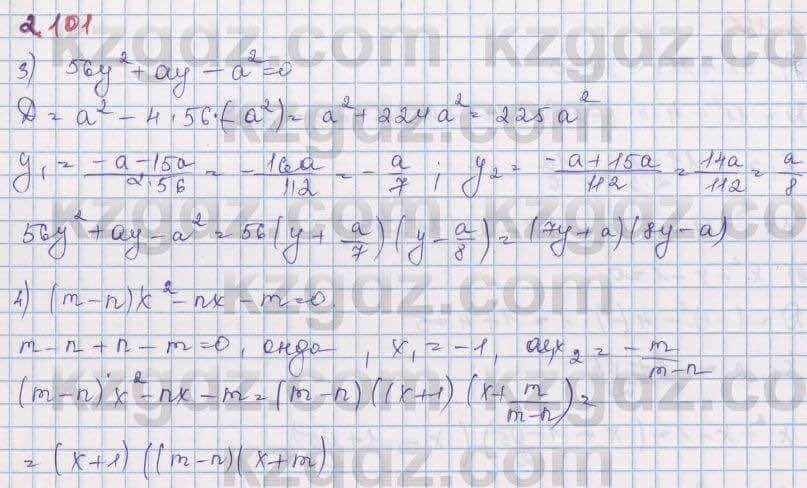 2.101
kzgdz.com kzgdz.com
3) 56y² + ay - a² = 0
D = a² - 4·56·(-a²) = a² + 224a² = 225a²
y₁ = (-a-15a)/(2·56) = -16a/112 = -a/7 ; y₂ = (-a+15a)/112 = 14a/112 = a/8
56y² + ay - a² = 56(y + a/7)(y - a/8) = (7y+a)(8y-a)
4) (m-n)x² - nx - m = 0
m - n + n - m = 0, онда , x₁ = -1, ал x₂ = -m/(m-n)
(m-n)x² - nx - m = (m-n)((x+1)(x + m/(m-n)) =
= (x+1)((m-n)(x+m)